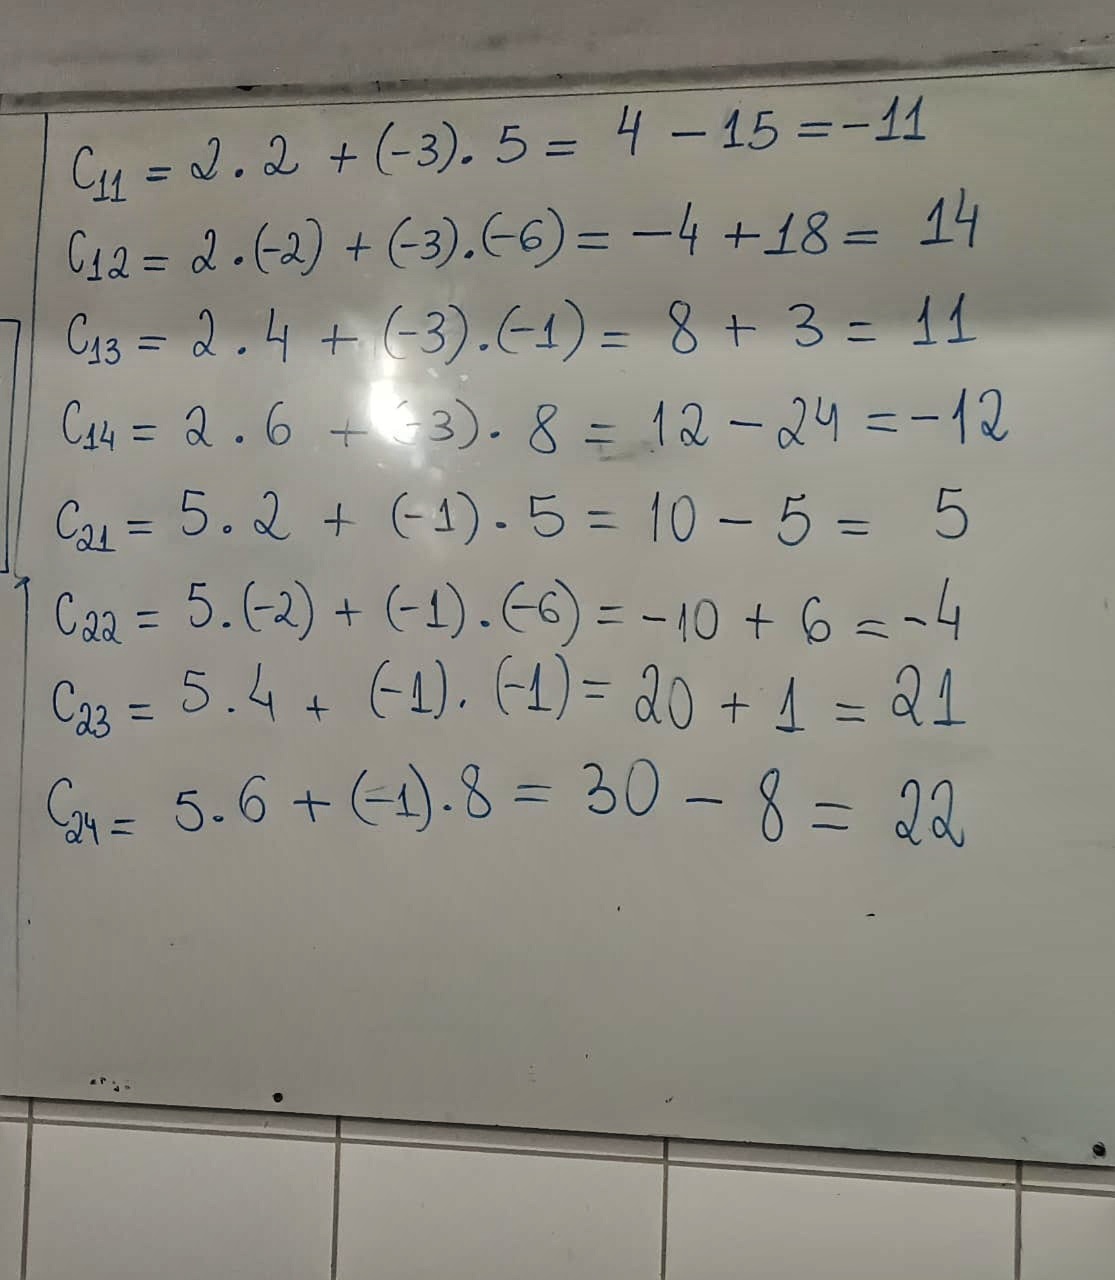 C₁₁ = 2 . 2 + (-3) . 5 = 4 - 15 = -11
C₁₂ = 2 . (-2) + (-3) . (-6) = -4 + 18 = 14
C₁₃ = 2 . 4 + (-3) . (-1) = 8 + 3 = 11
C₁₄ = 2 . 6 + (-3) . 8 = 12 - 24 = -12
C₂₁ = 5 . 2 + (-1) . 5 = 10 - 5 = 5
C₂₂ = 5 . (-2) + (-1) . (-6) = -10 + 6 = -4
C₂₃ = 5 . 4 + (-1) . (-1) = 20 + 1 = 21
C₂₄ = 5 . 6 + (-1) . 8 = 30 - 8 = 22